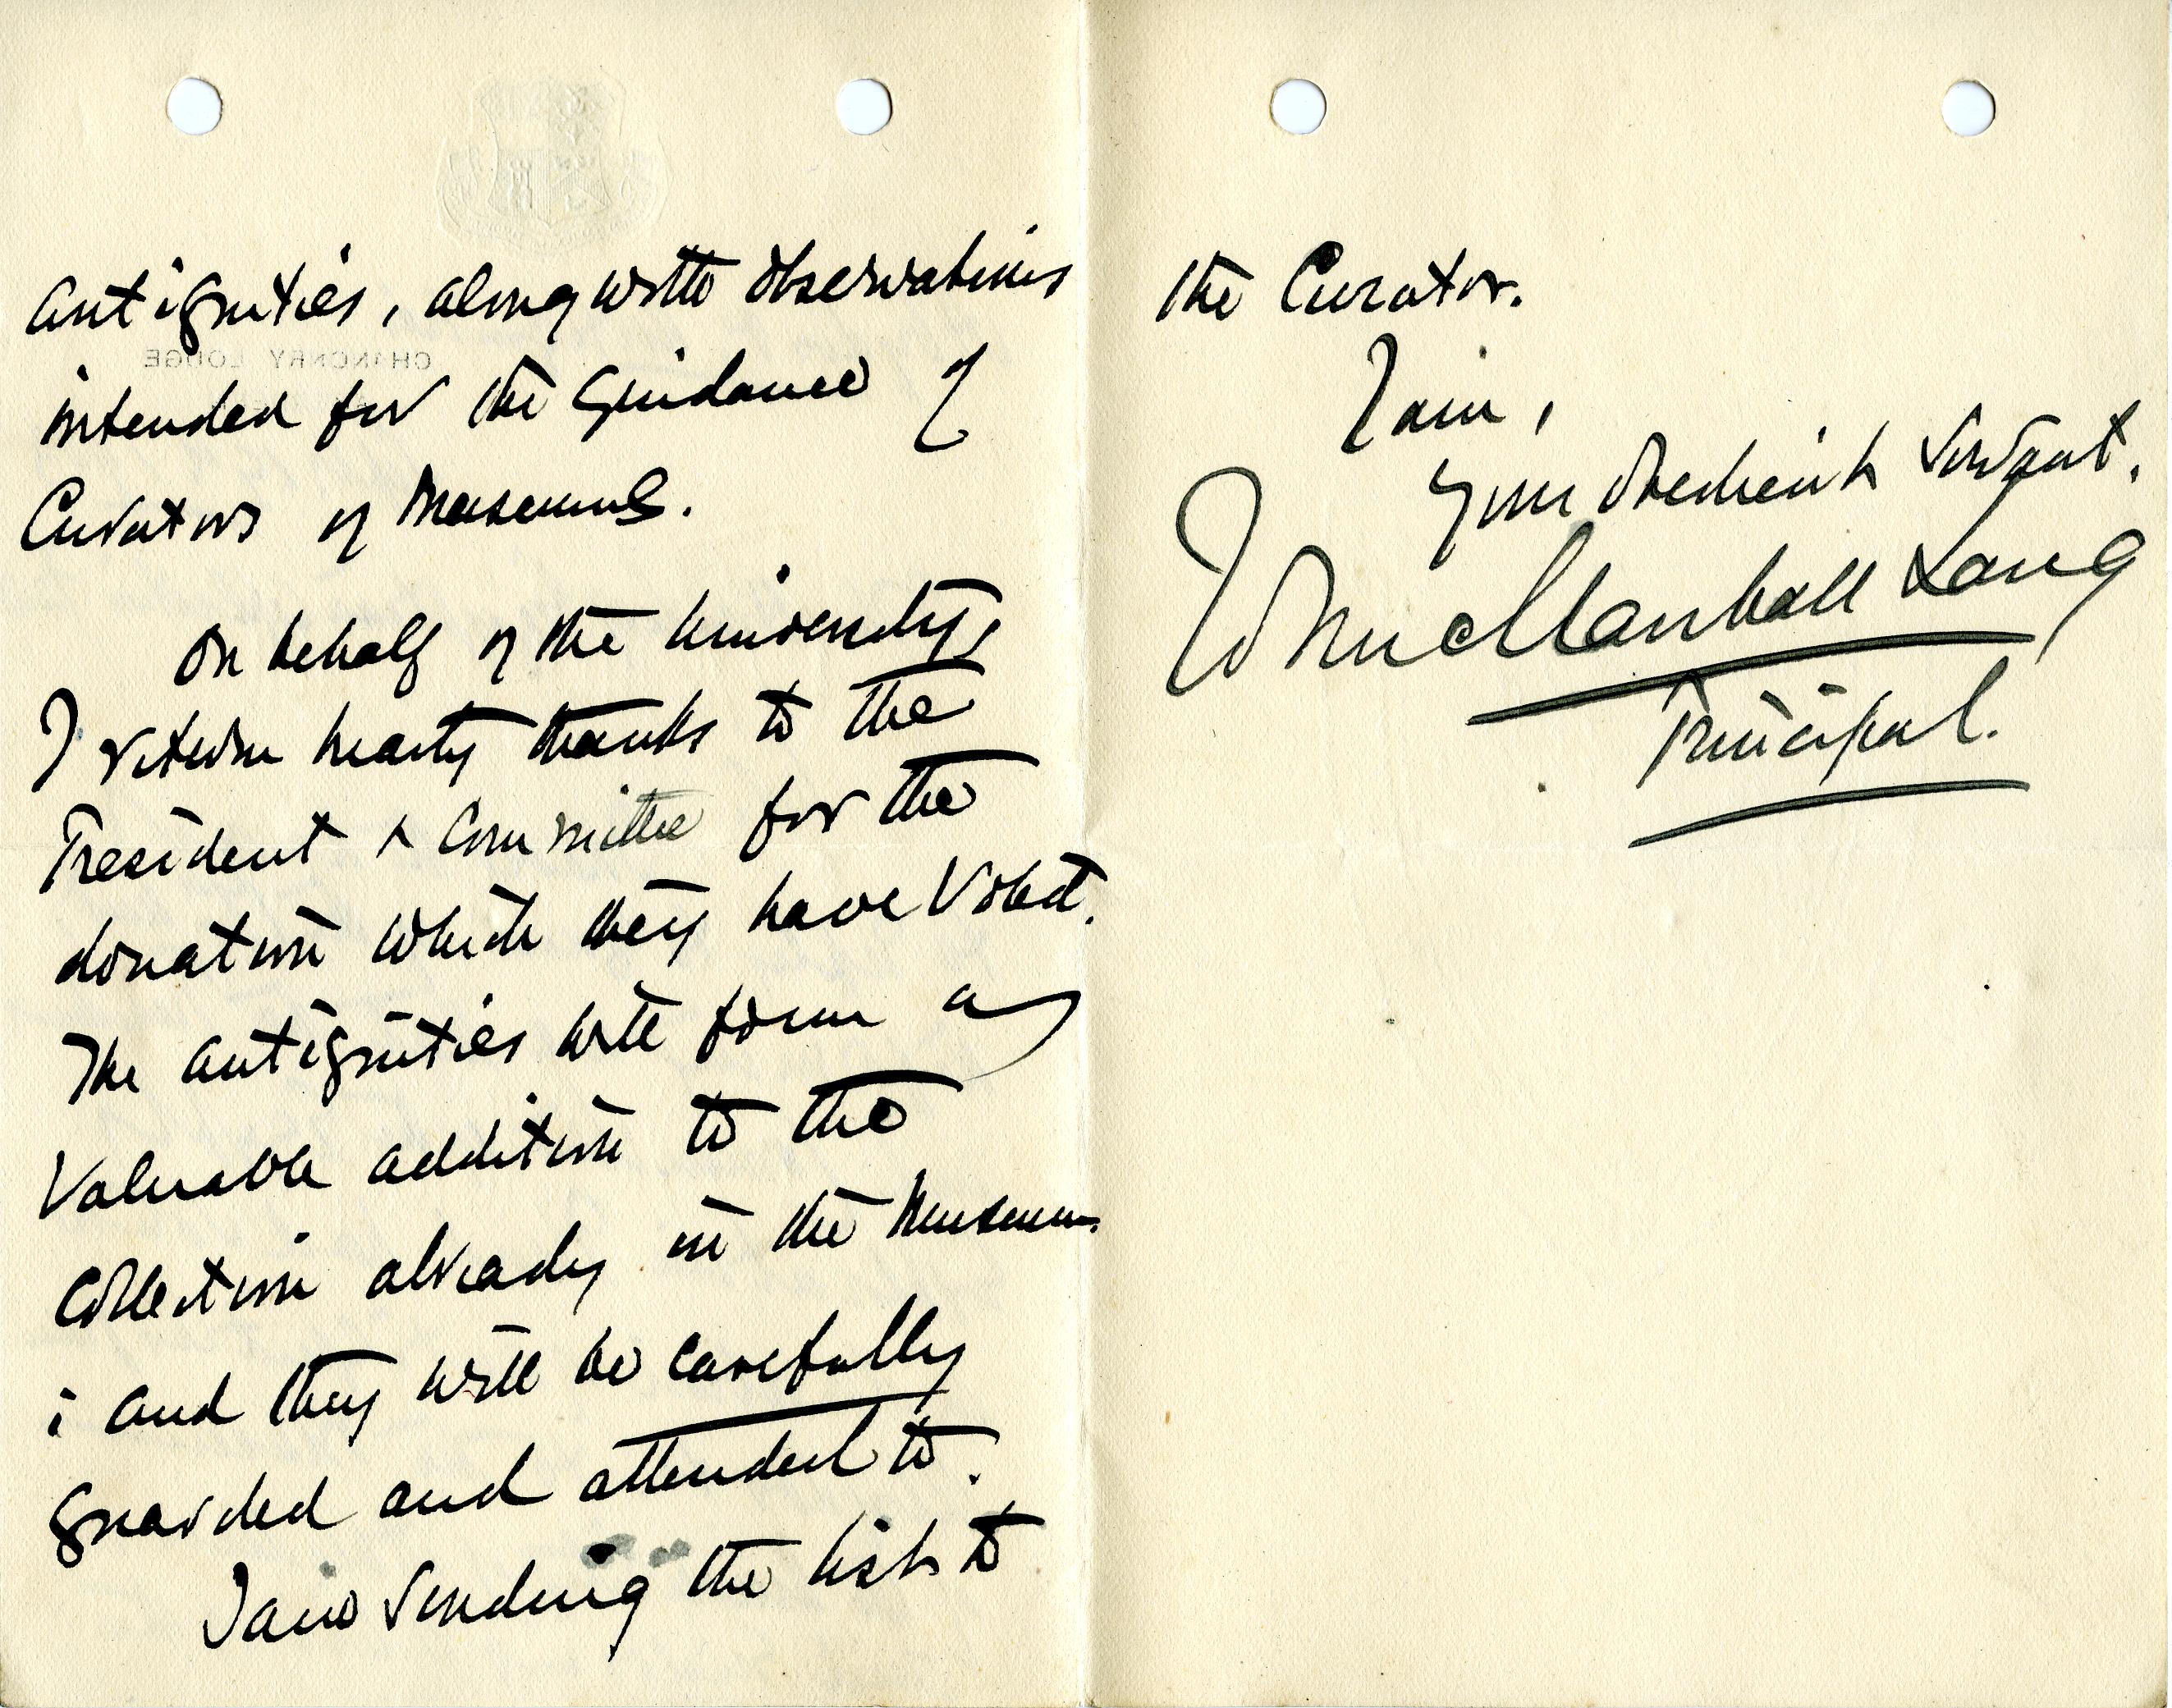 antiquities, along with observations
intended for the guidance of
Curators of Museums.
On behalf of the University,
I return hearty thanks to the
President & Committee for the
donation which they have voted.
The antiquities will form a
valuable addition to the
collection already in the Museum
; and they will be carefully
guarded and attended to.
I am sending the list to
the Curator.
I am,
Your obedient Servant.
John Marshall Lang
Principal.
CHANONRY LODGE